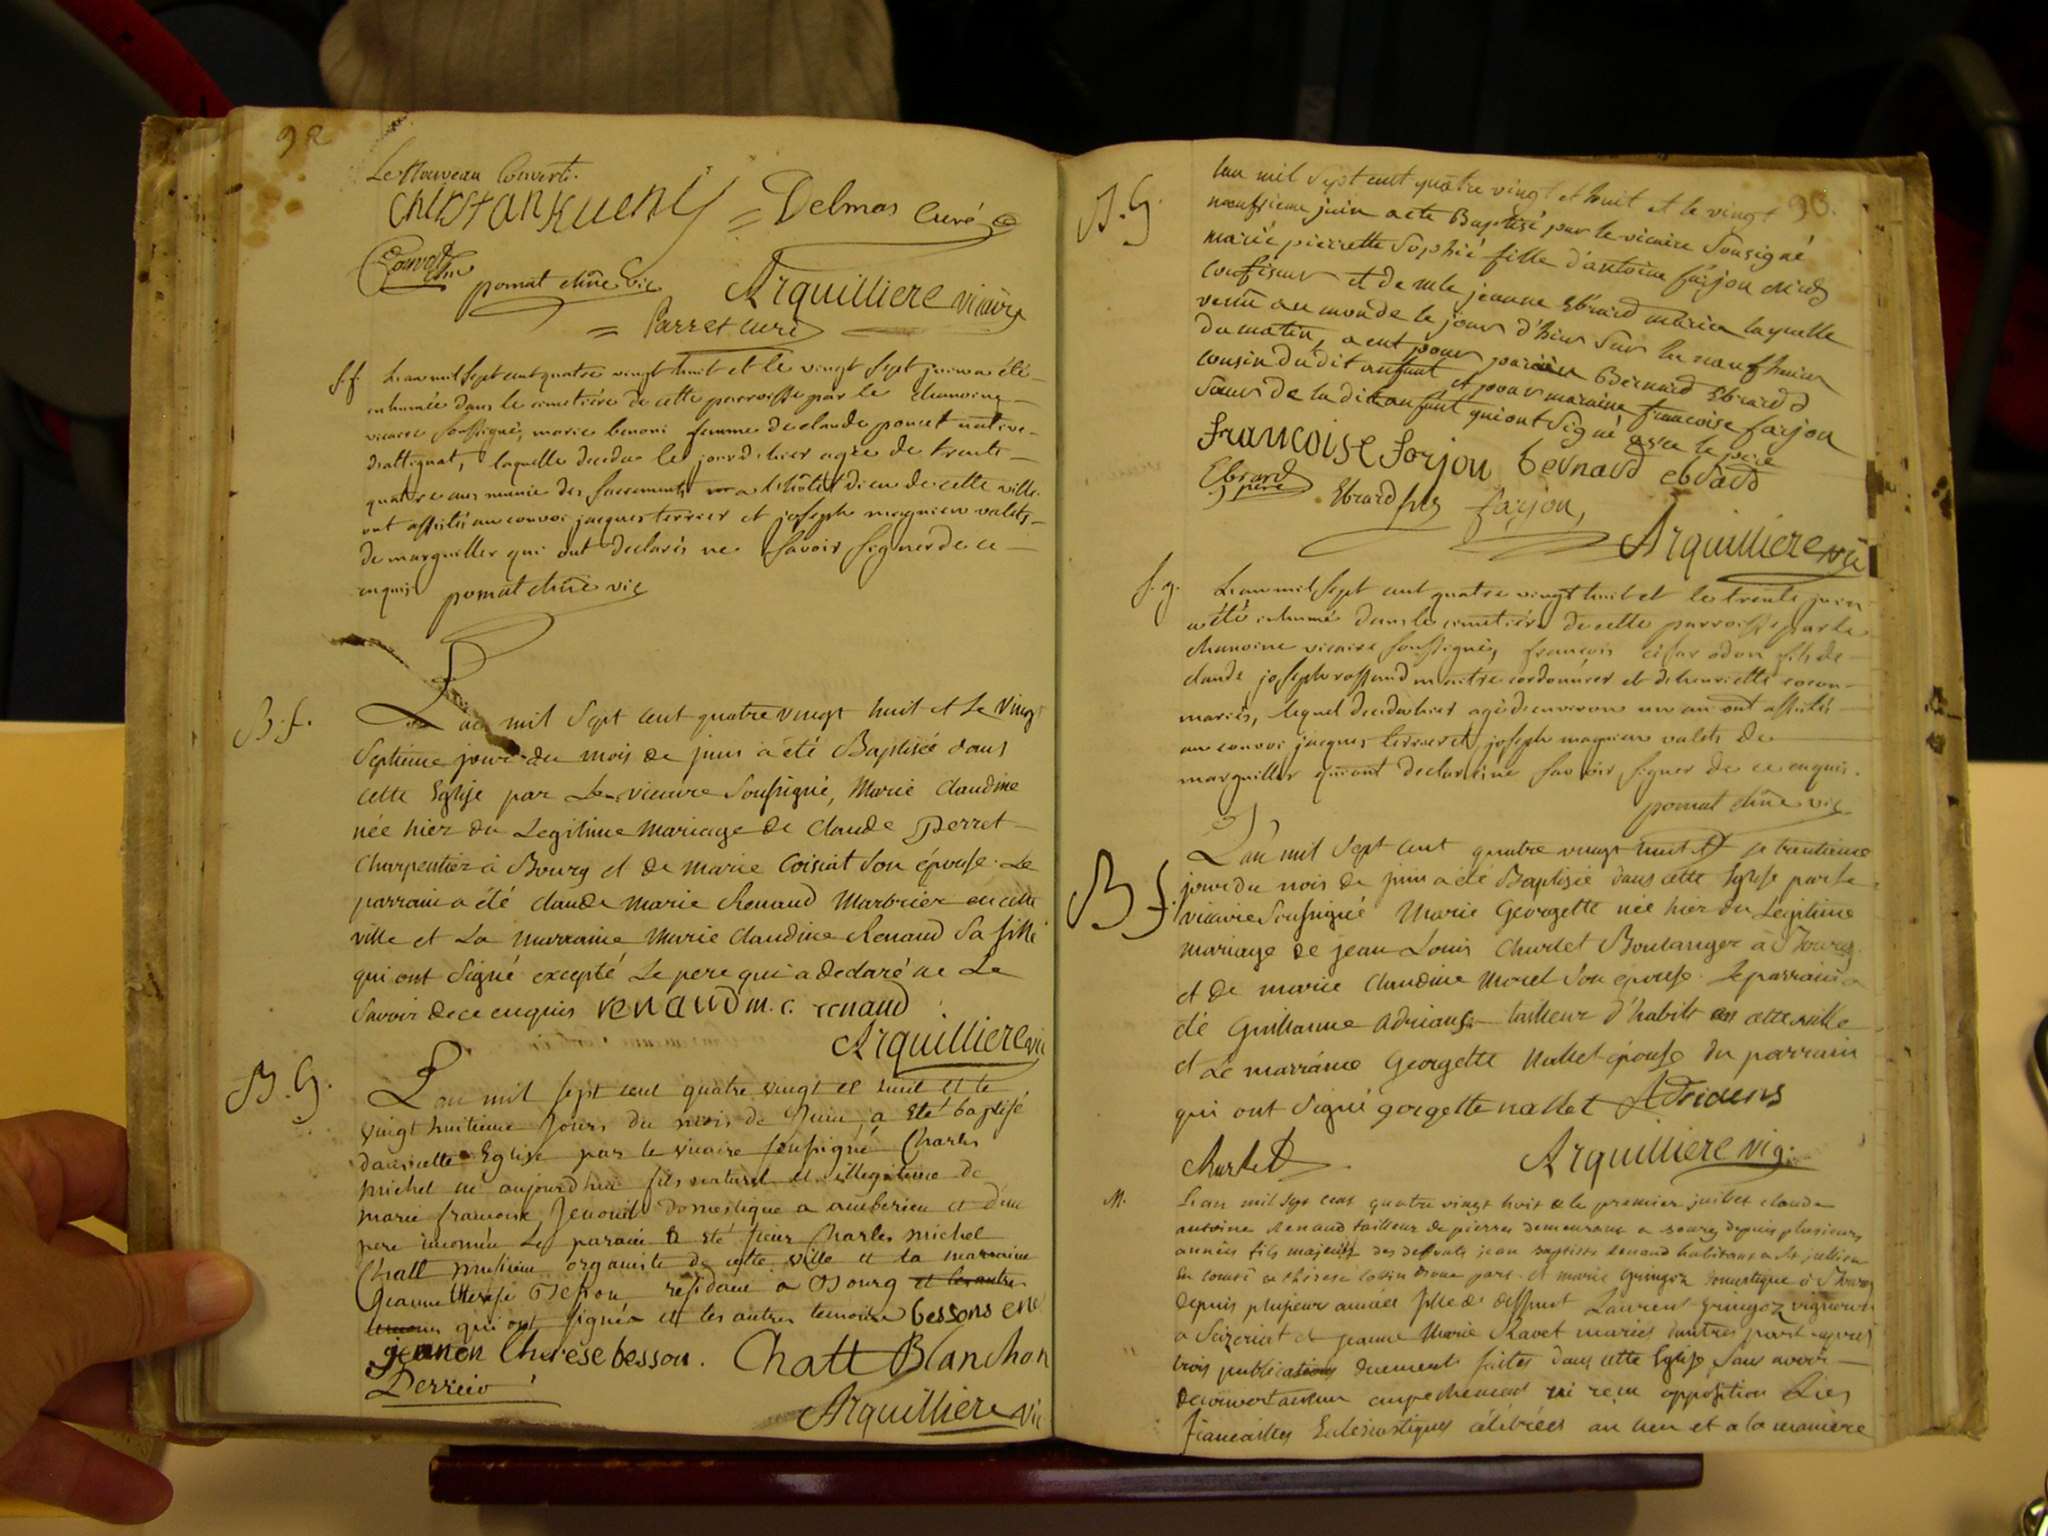 92
Le Nouveau Converti.
Delmas curé
pomat chne vic Arquilliere vicaire
Parret curé
S.f. L'an mil sept cent quatre vingt huit et le vingt sept juin a été
inhumée dans le cimetière de cette parroisse par le chanoine
vicaire soussigné, marie benoni femme de claude poncet native
d'attignat, laquelle decedée le jour d'hier agée de trente
quatre ans munie des sacrements a l'hôtel dieu de cette ville
ont assistés au convoi jacques terrier et joseph magnien valets
de marguiller qui ont declarés ne savoir signer de ce
enquis pomat chne vic
B.f. L'an mil sept cent quatre vingt huit et le vingt
septieme jour du mois de juin a été Baptisée dans
cette Eglise par Le vicaire soussigné, Marie claudine
née hier du Legitime mariage de claude Perret
charpentier à Bourg et de marie Coisiat son épouse. Le
parrain a été claude marie Renaud Marbrier en cette
ville et La marraine Marie claudine Renaud sa fille
qui ont signé excepté Le pere qui a declaré ne Le
savoir de ce enquis renaud m. c. renaud
Arquilliere vic
B.G. L'an mil sept cent quatre vingt et huit et le
vingt huitieme jours du mois de Juin, a été baptisé
dans cette Eglise par le vicaire soussigné Charles
michel né aujourdhui fils naturel et illegitime de
marie francoise Jenoud Domestique a amberieu et d'un
pere inconnu Le parain a été sieur Charles michel
Chatt musicien organiste de cette ville et la marraine
Jeanne therese residant a Bourg et les autres
temoins qui ont signés et les autres temoins bessons ene
jeanon therese besson. Chatt Blanchon
Perrein
Arquilliere vic
93.
B.G. L'an mil sept cent quatre vingt et huit et le vingt
neufvieme juin a ete Baptisé par le vicaire sousigné
marie pierrette Sophie fille d'antoine farjon
confiseur et de mle jeanne Ebrard mariés laquelle
venu au monde le jour d'hier sur les neuf heures
du matin, a eut pour parrein Bernard Ebrard
cousin du dit enfant et pour maraine francoise farjon
sœur de la dite enfant qui ont signé avec le pere
francoise Forjon bernard ebrard
Ebrard pere Ebrard fils farjon,
Arquilliere vic
S.g. L'an mil sept cent quatre vingt huit et le trente juin
a été inhumé dans le cimetière de cette parroisse par le
chanoine vicaire soussigné, françois cesar odon fils de
claude joseph maitre cordonnier et d'henriette
mariés, lequel decedé hier agé d'environ un an ont assistés
au convoi jacques terrier et joseph magnien valets de
marguiller qui ont declarés ne savoir signer de ce enquis.
pomat chne vic
B f. L'an mil sept cent quatre vingt huit et le trentieme
jour du mois de juin a été Baptisée dans cette Eglise par Le
vicaire soussigné Marie Georgette née hier du Legitime
mariage de jean Louis Charlet Boulanger à Bourg
et de marie claudine Morel son epouse. Le parrain a
été Guillaume Adrians tailleur d'habits en cette ville
et La marraine Georgette Nallet épouse du parrain
qui ont signé gorgette nallet Adriaens
Charlet Arquilliere vic.
M. L'an mil sept cent quatre vingt huit & le premier juillet claude
antoine Renaud tailleur de pierres demeurant a bourg depuis plusieurs
années fils majeur des deffunts jean baptiste Renaud habitant a St jullien
en comté & therese d'une part. et marie Gringoz domestique à Bourg
depuis plusieurs années fille de deffunt Laurent Gringoz vigneron
a Seizeriat et jeanne Marie Ravet mariés d'autres part apres
trois publications duement faites dans cette Eglise sans avoir
decouvert aucun empechement ni reçu opposition Les
fiancailles Eclésiastiques célébrées au lieu et a la maniere